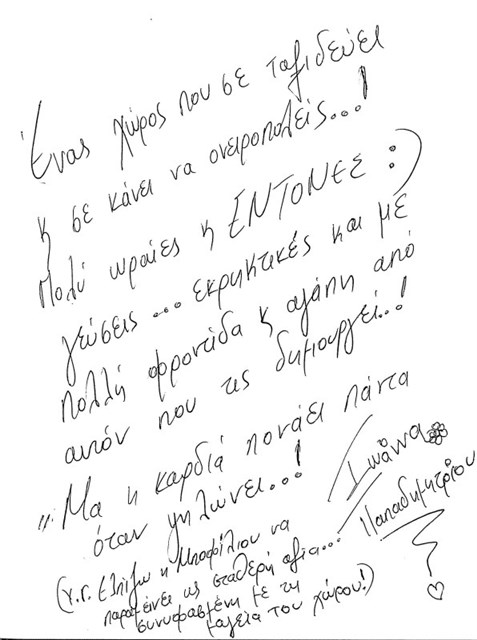 Ένας χώρος που σε ταξιδεύει
κ σε κάνει να ονειροπολείς...!
Πολύ ωραίες κ ΕΝΤΟΝΕΣ :)
γεύσεις... εκρηκτικές και με
πολλή φροντίδα κ αγάπη από
αυτόν που τις δημιουργεί..!
"Μα η καρδιά πονάει πάντα
όταν ψηλώνει...!
Ιωάννα
Παπαδημητρίου
(Υ.Γ. Ελπίζω η Μποφίλιου να
παραμείνει ως σταθερή αξία...
συνυφασμένη με τη
μαγεία του χώρου!)